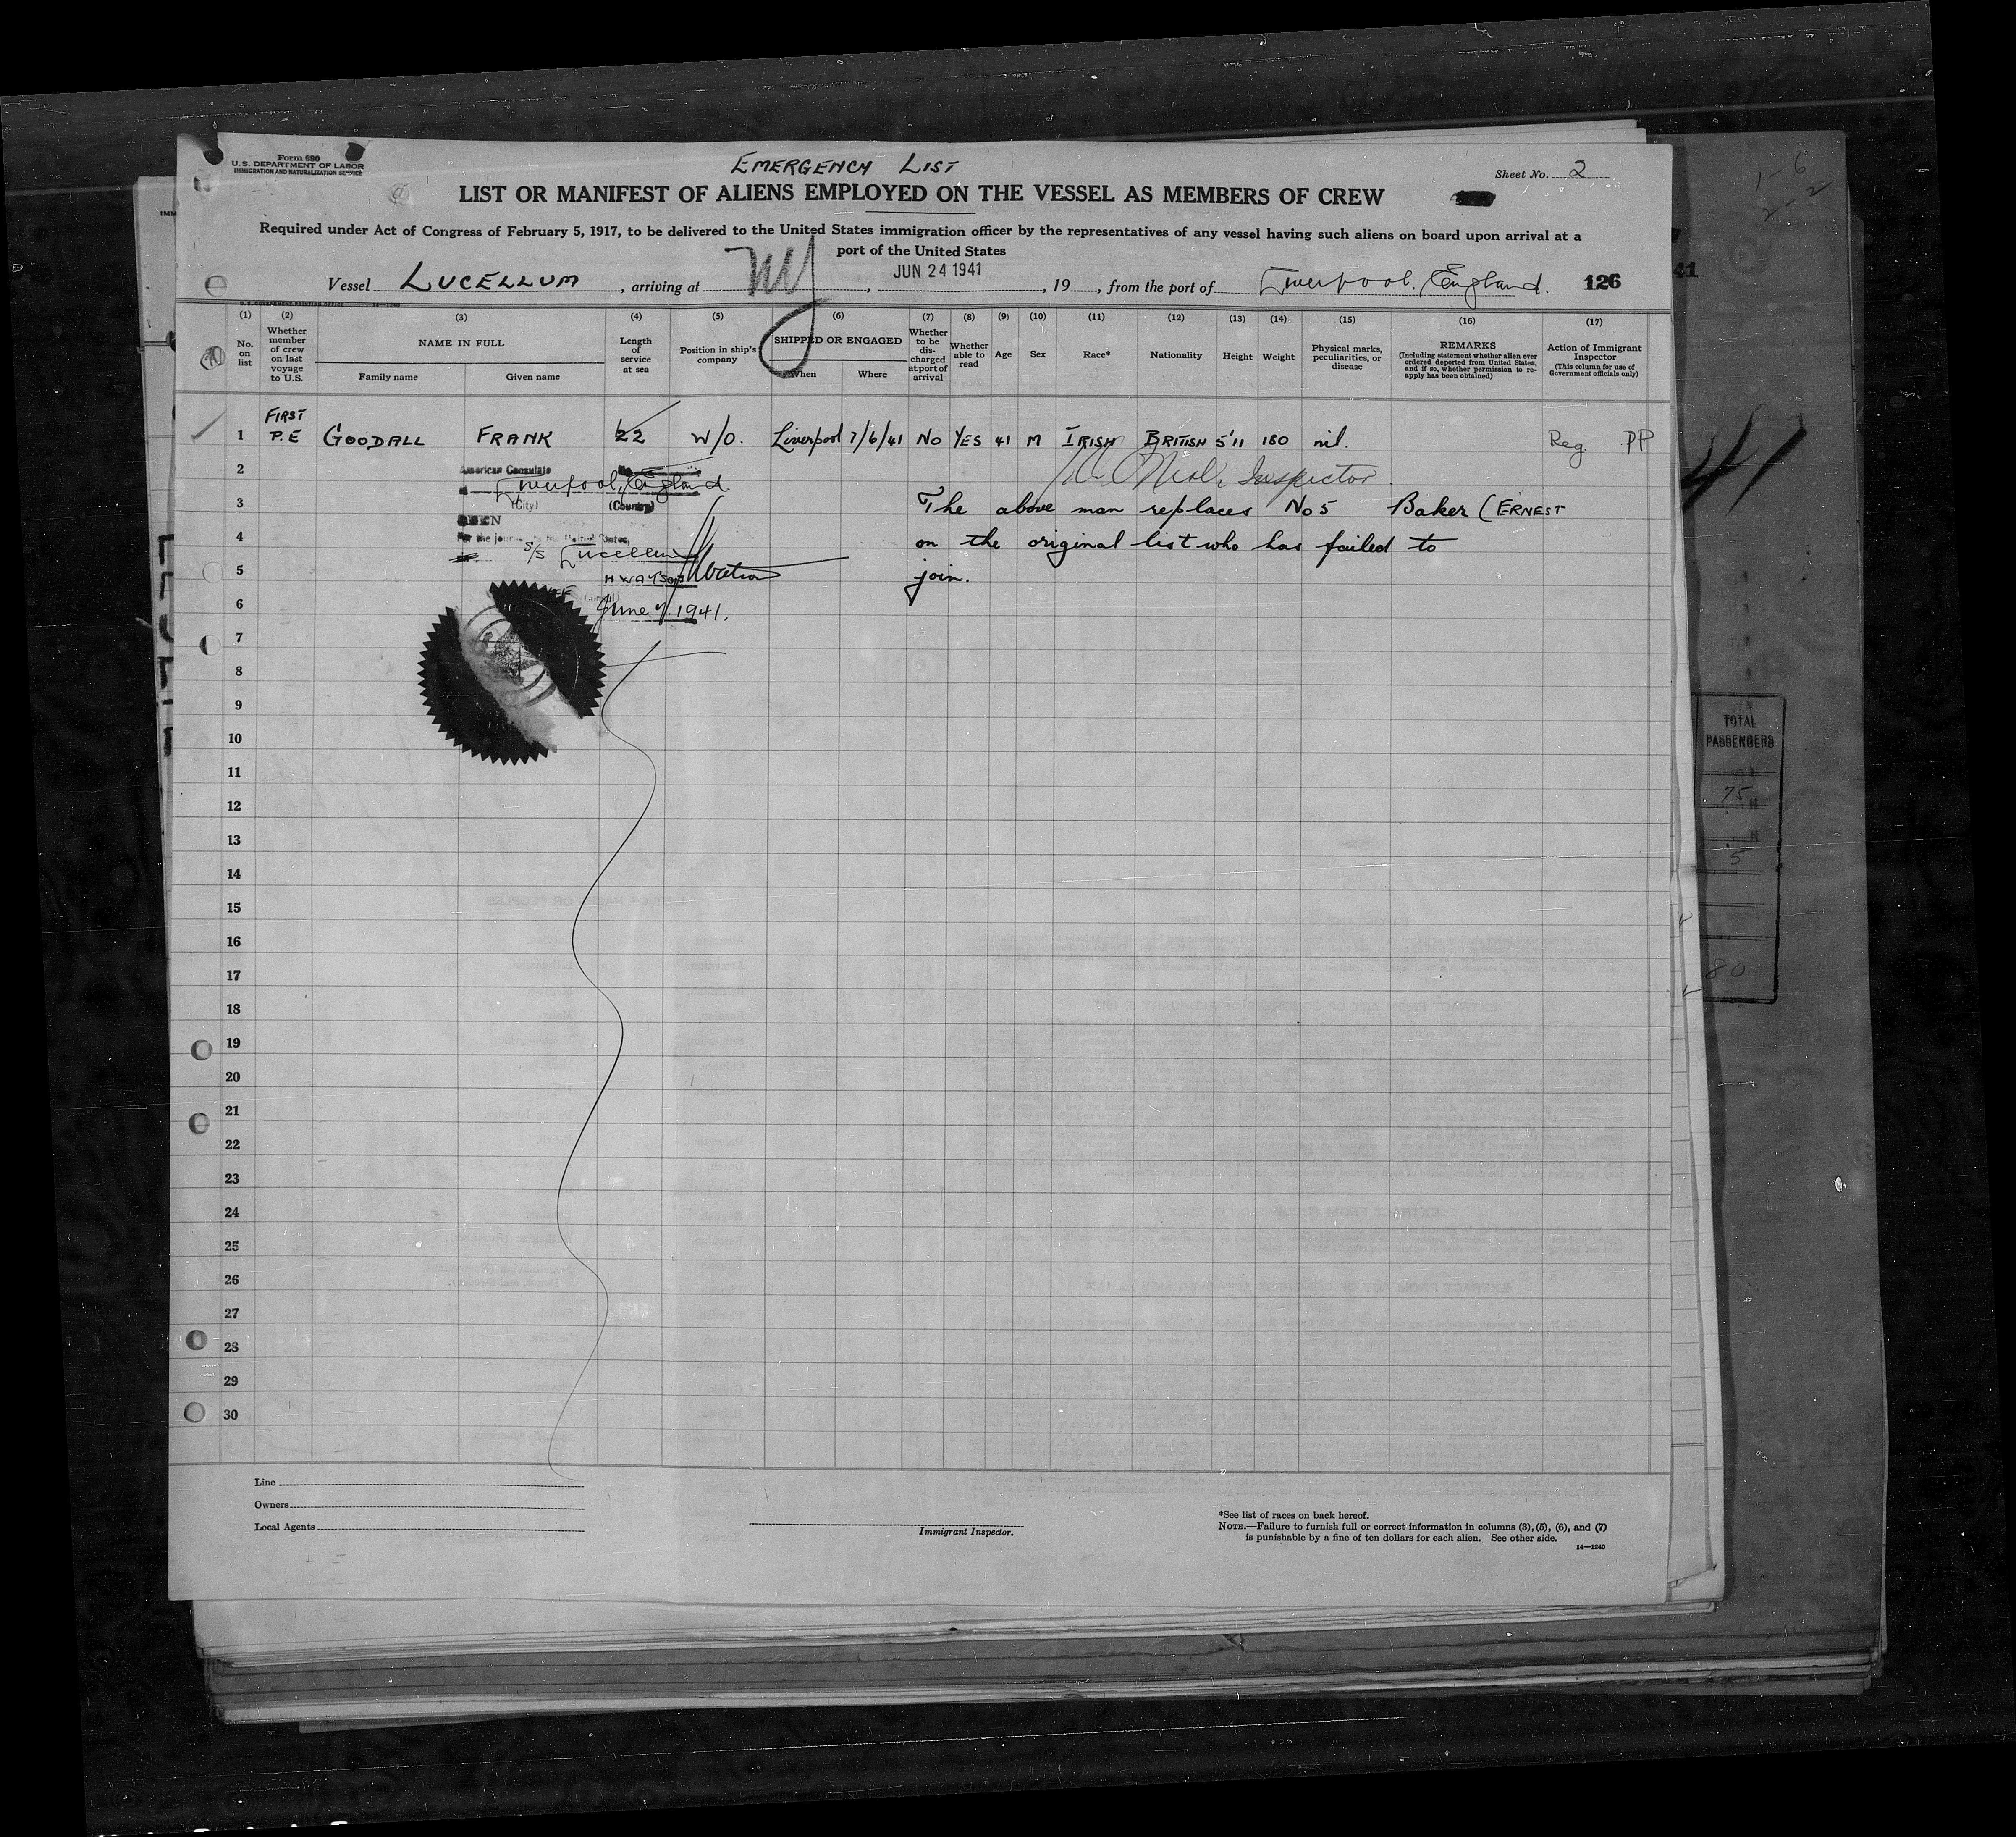 Form 680
U. S. DEPARTMENT OF LABOR
IMMIGRATION AND NATURALIZATION SERVICE
EMERGENCY LIST
Sheet No. 2
LIST OR MANIFEST OF ALIENS EMPLOYED ON THE VESSEL AS MEMBERS OF CREW
Required under Act of Congress of February 5, 1917, to be delivered to the United States immigration officer by the representatives of any vessel having such aliens on board upon arrival at a
port of the United States
Vessel LUCELLUM, arriving at NY, JUN 24 1941, 19, from the port of Liverpool, England. 126
(1) (2) (3) (4) (5) (6) (7) (8) (9) (10) (11) (12) (13) (14) (15) (16) (17)
No. on list
Whether member of crew on last voyage to U.S.
NAME IN FULL
Family name
Given name
Length of service at sea
Position in ship's company
SHIPPED OR ENGAGED
When
Where
Whether to be discharged at port of arrival
Whether able to read
Age
Sex
Race*
Nationality
Height
Weight
Physical marks, peculiarities, or disease
REMARKS
(Including statement whether alien ever ordered deported from United States, and if so, whether permission to reapply has been obtained)
Action of Immigrant Inspector
(This column for use of Government officials only)
1 FIRST P.E GOODALL FRANK 22 W/O. Liverpool 7/6/41 NO YES 41 M IRISH BRITISH 5'11 180 nil. Reg. PP
2
American Consulate
Liverpool, England
Inspector
(City) (Country)
3 The above man replaces No 5 Baker (ERNEST
SEEN
For the journey to the United States,
4 on the original list who has failed to
S/S Lucellum
5 join.
H WATSON
6 June 7, 1941.
7
8
9
10
11
12
13
14
15
16
17
18
19
20
21
22
23
24
25
26
27
28
29
30
Line
Owners
Local Agents
Immigrant Inspector.
*See list of races on back hereof.
NOTE.—Failure to furnish full or correct information in columns (3), (5), (6), and (7)
is punishable by a fine of ten dollars for each alien. See other side.
14—1240
41
TOTAL
PASSENGERS
75
5
80